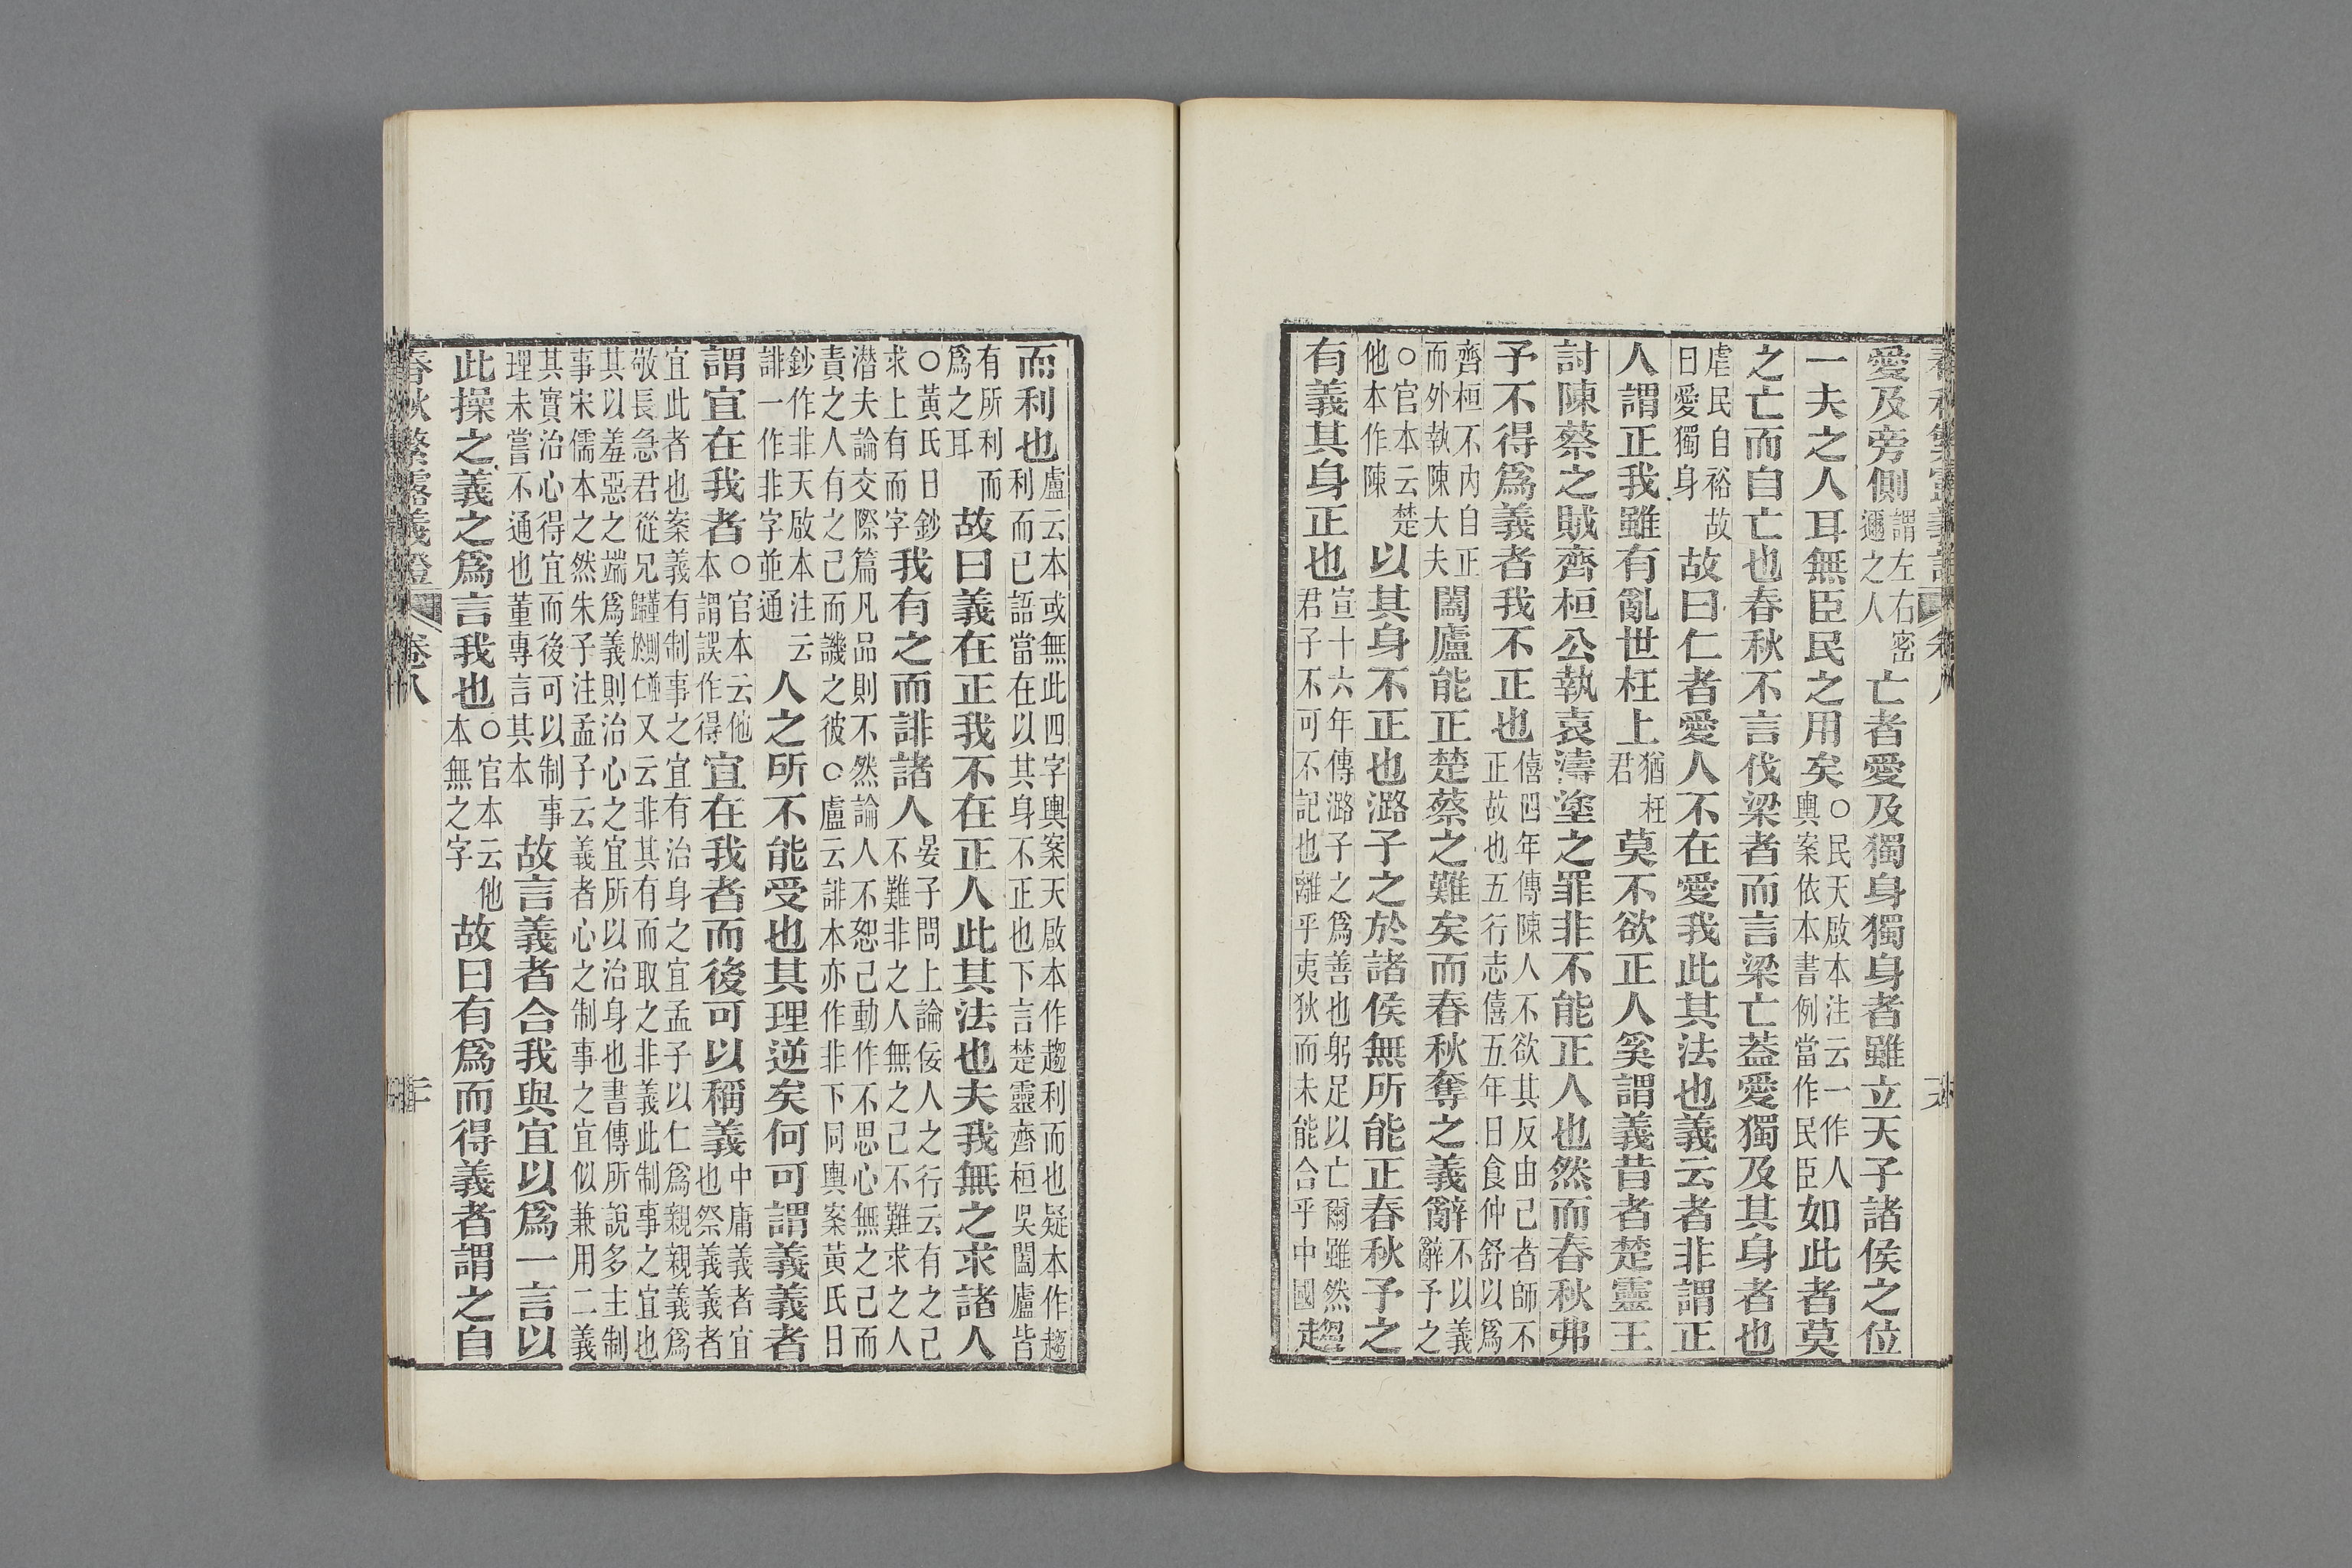 愛及旁側謂左右密邇之人亡者愛及獨身獨身者雖立天子諸侯之位
一夫之人耳無臣民之用矣○民天啟本注云一作人輿案依本書例當作民臣如此者莫
之亡而自亡也春秋不言伐梁者而言梁亡蓋愛獨及其身者也
虐民自裕故曰愛獨身故曰仁者愛人不在愛我此其法也義云者非謂正
人謂正我雖有亂世枉上猶枉君莫不欲正人奚謂義昔者楚靈王
討陳蔡之賊齊桓公執袁濤塗之罪非不能正人也然而春秋弗
予不得爲義者我不正也僖四年傳陳人不欲其反由己者師不正故也五行志僖五年日食仲舒以爲
齊桓不內自正而外執陳大夫闔廬能正楚蔡之難矣而春秋奪之義辭不以義辭予之
○官本云楚他本作陳以其身不正也潞子之於諸侯無所能正春秋予之
有義其身正也宣十六年傳潞子之爲善也躬足以亡爾雖然君子不可不記也離乎夷狄而未能合乎中國趨
而利也盧云本或無此四字輿案天啟本作趨利而也疑本作趨利而已語當在以其身不正也下言楚靈齊桓吳闔廬皆
有所利而爲之耳故曰義在正我不在正人此其法也夫我無之求諸人
○黃氏日鈔求上有而字我有之而誹諸人晏子問上論佞人之行云有之己不難非之人無之己不難求之人
潛夫論交際篇凡品則不然論人不恕己動作不思心無之己而責之人有之己而譏之彼○盧云誹本亦作非下同輿案黃氏日
鈔作非天啟本注云誹一作非字並通人之所不能受也其理逆矣何可謂義義者
謂宜在我者○官本云他本謂誤作得宜在我者而後可以稱義中庸義者宜也祭義義者
宜此者也案義有制事之宜有治身之宜孟子以仁爲親親義爲敬長急君從兄於仁又云非其有而取之非義此制事之宜也
其以羞惡之端爲義則治心之宜所以治身也書傳所說多主制事宋儒本之然朱子注孟子云義者心之制事之宜似兼用二義
其實治心得宜而後可以制事理未嘗不通也董專言其本故言義者合我與宜以爲一言以
此操之義之爲言我也○官本云他本無之字故曰有爲而得義者謂之自
春秋繁露義證 卷八 二十